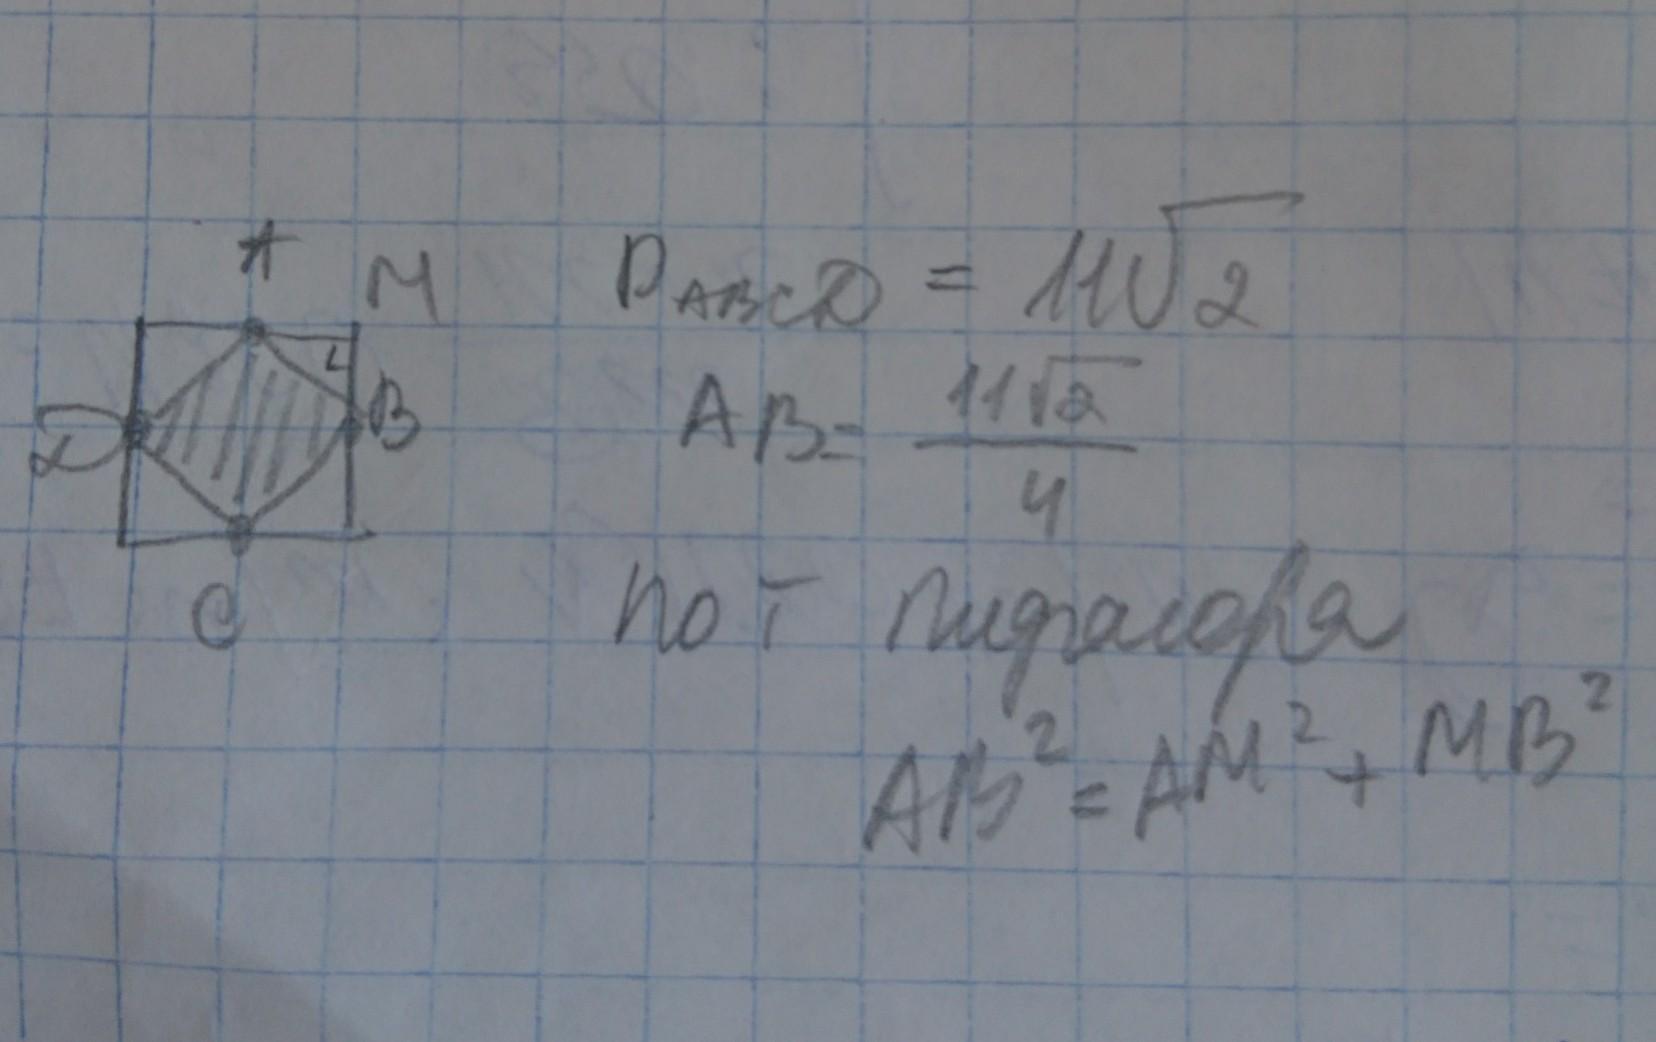 A
M
D
B
C
P_ABCD = 11√2
AB = 11√2/4
По т Пифагора
AB² = AM² + MB²